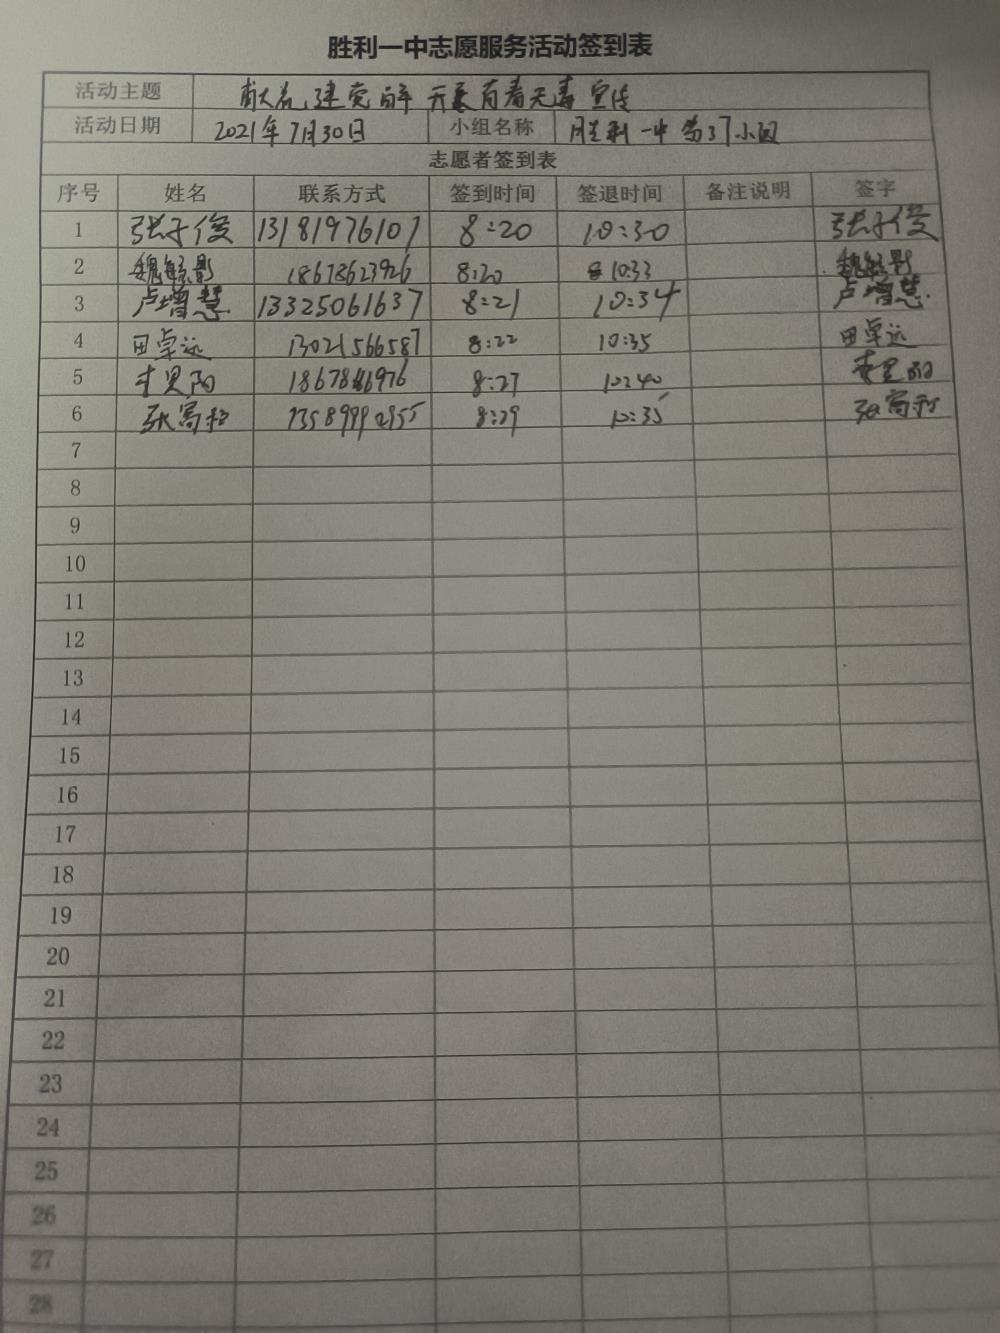 胜利一中志愿服务活动签到表
活动主题 献礼建党百年 开展青春无毒宣传
活动日期 2021年7月30日 小组名称 胜利一中第37小组
志愿者签到表
序号 姓名 联系方式 签到时间 签退时间 备注说明 签字
1 张子俊 13181976107 8:20 10:30 张子俊
2 18678623926 8:20 10:33
3 卢增慧 13325061637 8:21 10:34 卢增慧
4 田卓远 13021566587 8:22 10:35 田卓远
5 8:27 10:40
6 张富 8:29 10:35 张富
7
8
9
10
11
12
13
14
15
16
17
18
19
20
21
22
23
24
25
26
27
28